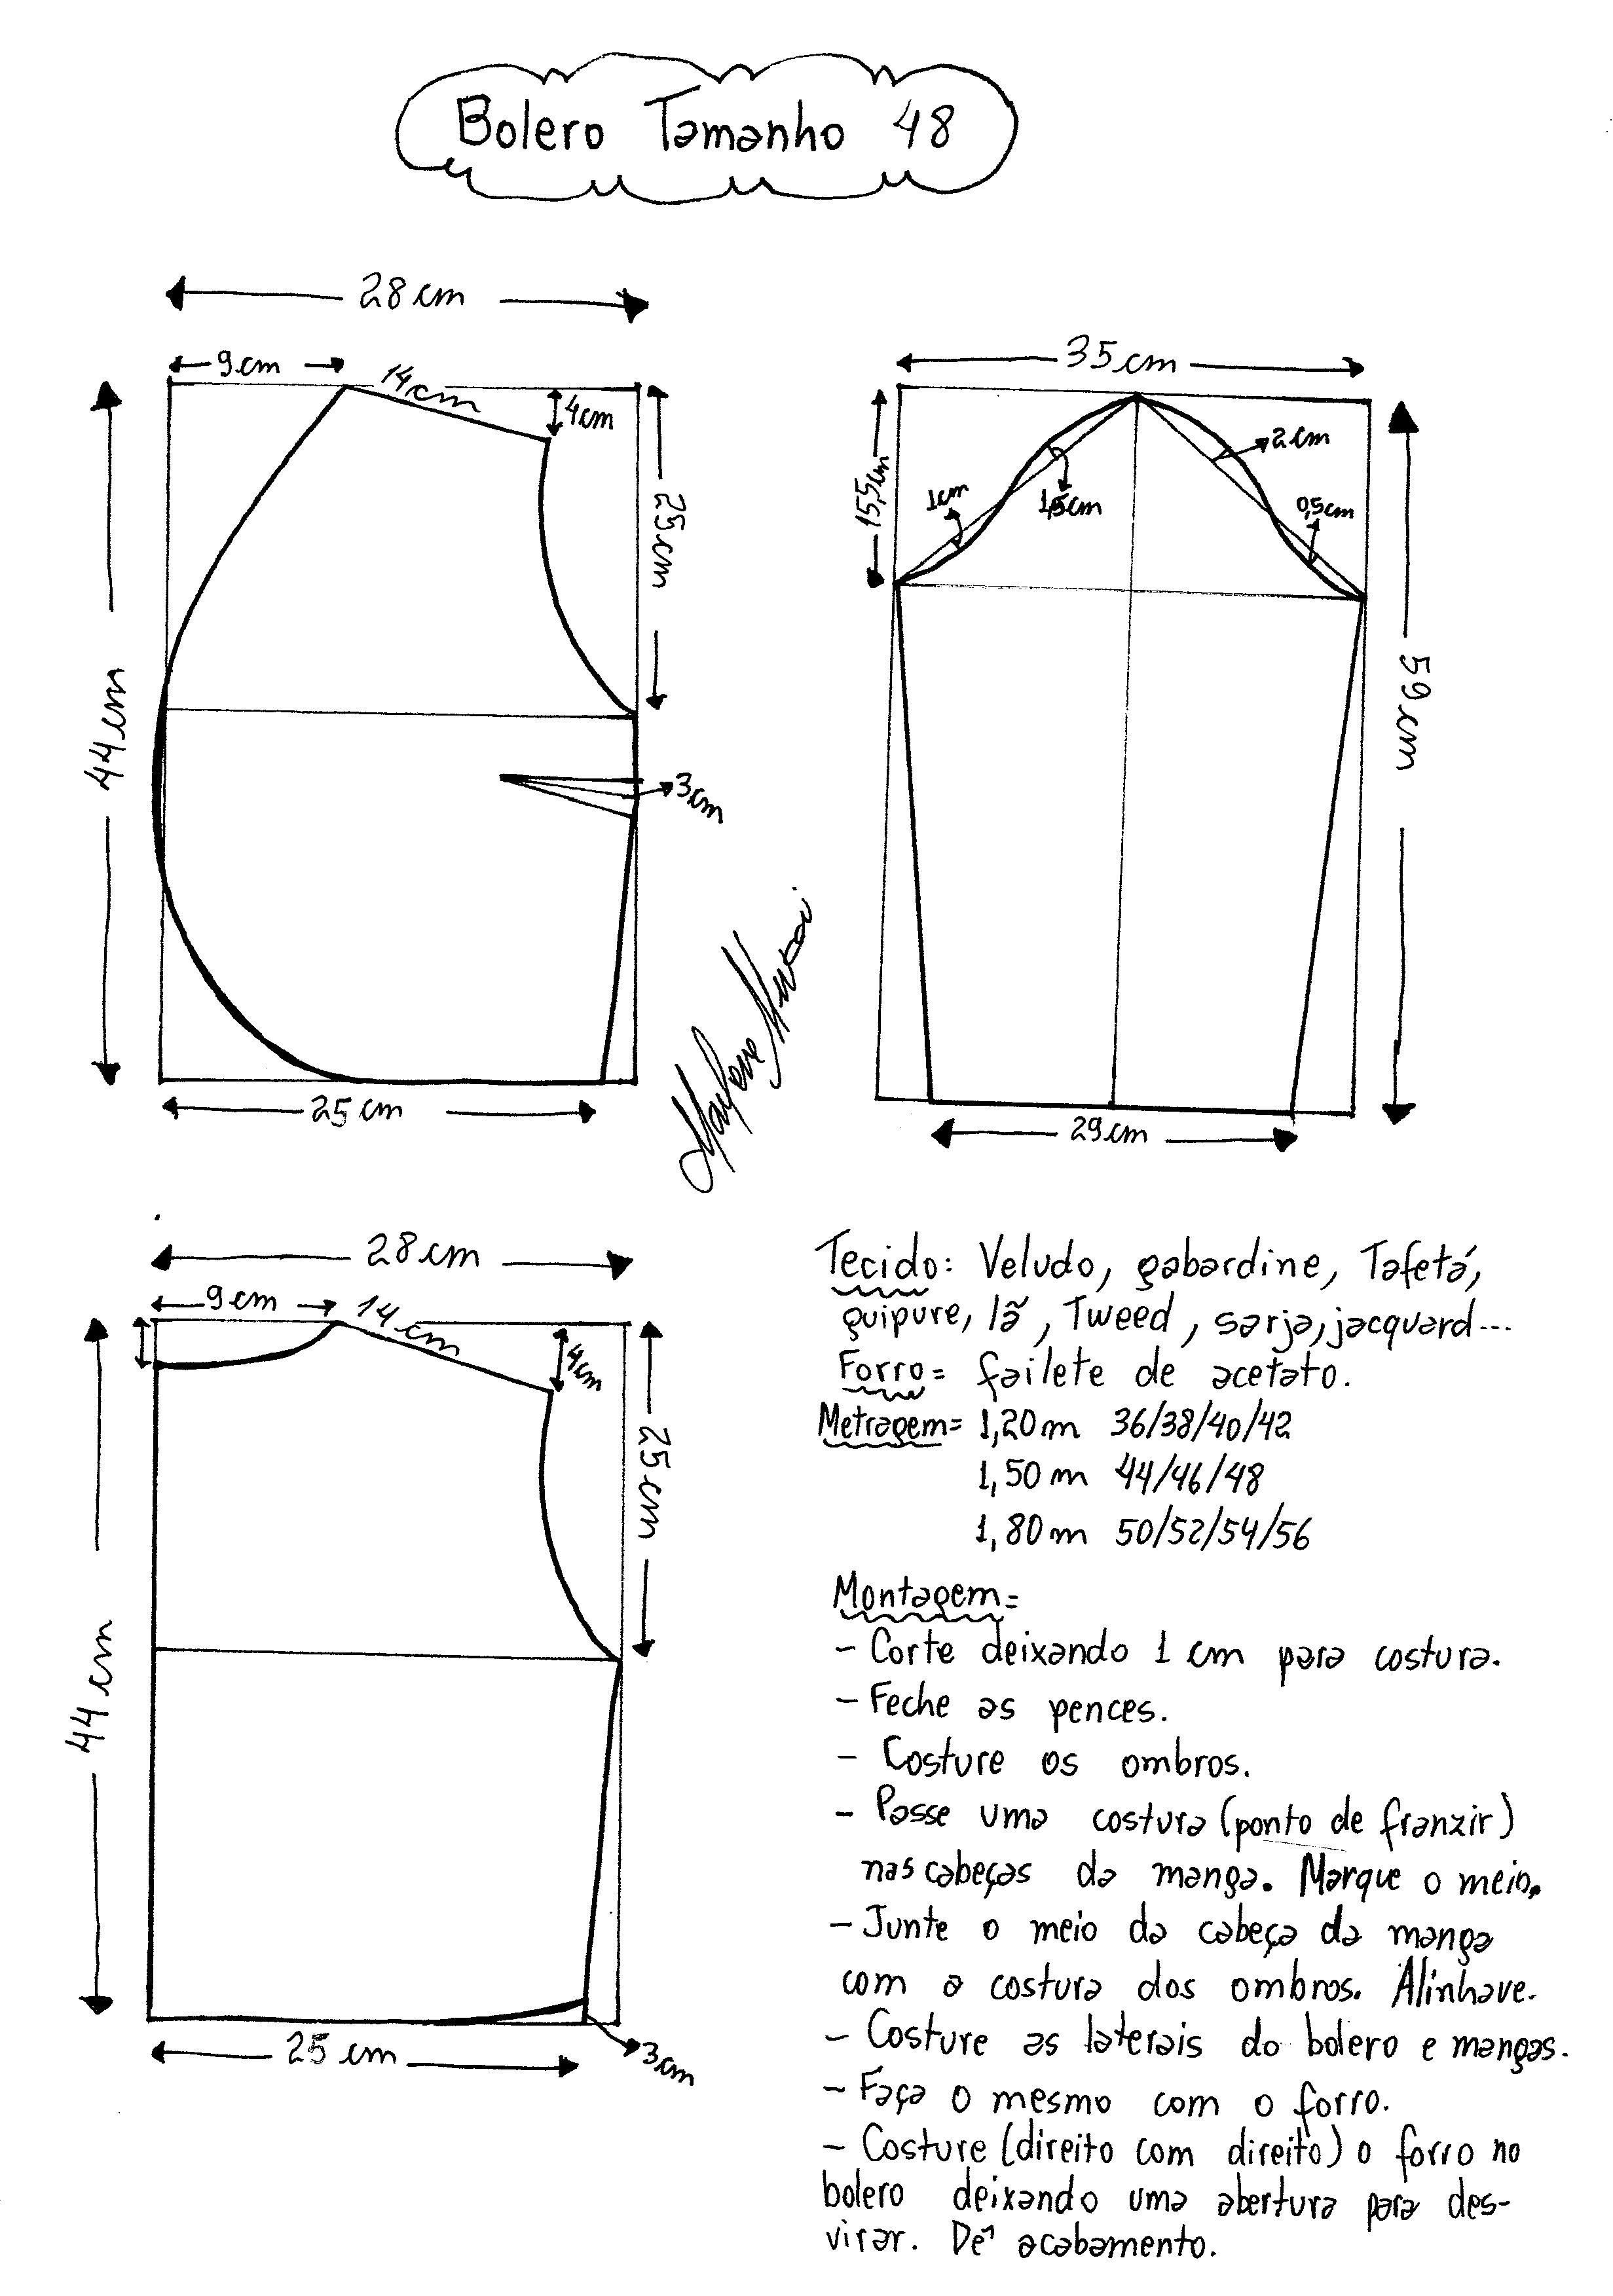 Bolero Tamanho 48
28 cm
9 cm
14 cm
4 cm
25 cm
44 cm
3 cm
25 cm
35 cm
15,5 cm
1 cm
1,5 cm
2 cm
0,5 cm
59 cm
29 cm
28 cm
9 cm
14 cm
4 cm
25 cm
44 cm
25 cm
3 cm
Tecido: Veludo, gabardine, Tafetá,
guipure, lã, Tweed, sarja, jacquard...
Forro= failete de acetato.
Metragem= 1,20 m 36/38/40/42
1,50 m 44/46/48
1,80 m 50/52/54/56
Montagem=
- Corte deixando 1 cm para costura.
- Feche as pences.
- Costure os ombros.
- Passe uma costura (ponto de franzir)
nas cabeças da manga. Marque o meio.
- Junte o meio da cabeça da manga
com a costura dos ombros. Alinhave.
- Costure as laterais do bolero e mangas.
- Faça o mesmo com o forro.
- Costure (direito com direito) o forro no
bolero deixando uma abertura para des-
virar. Dê acabamento.